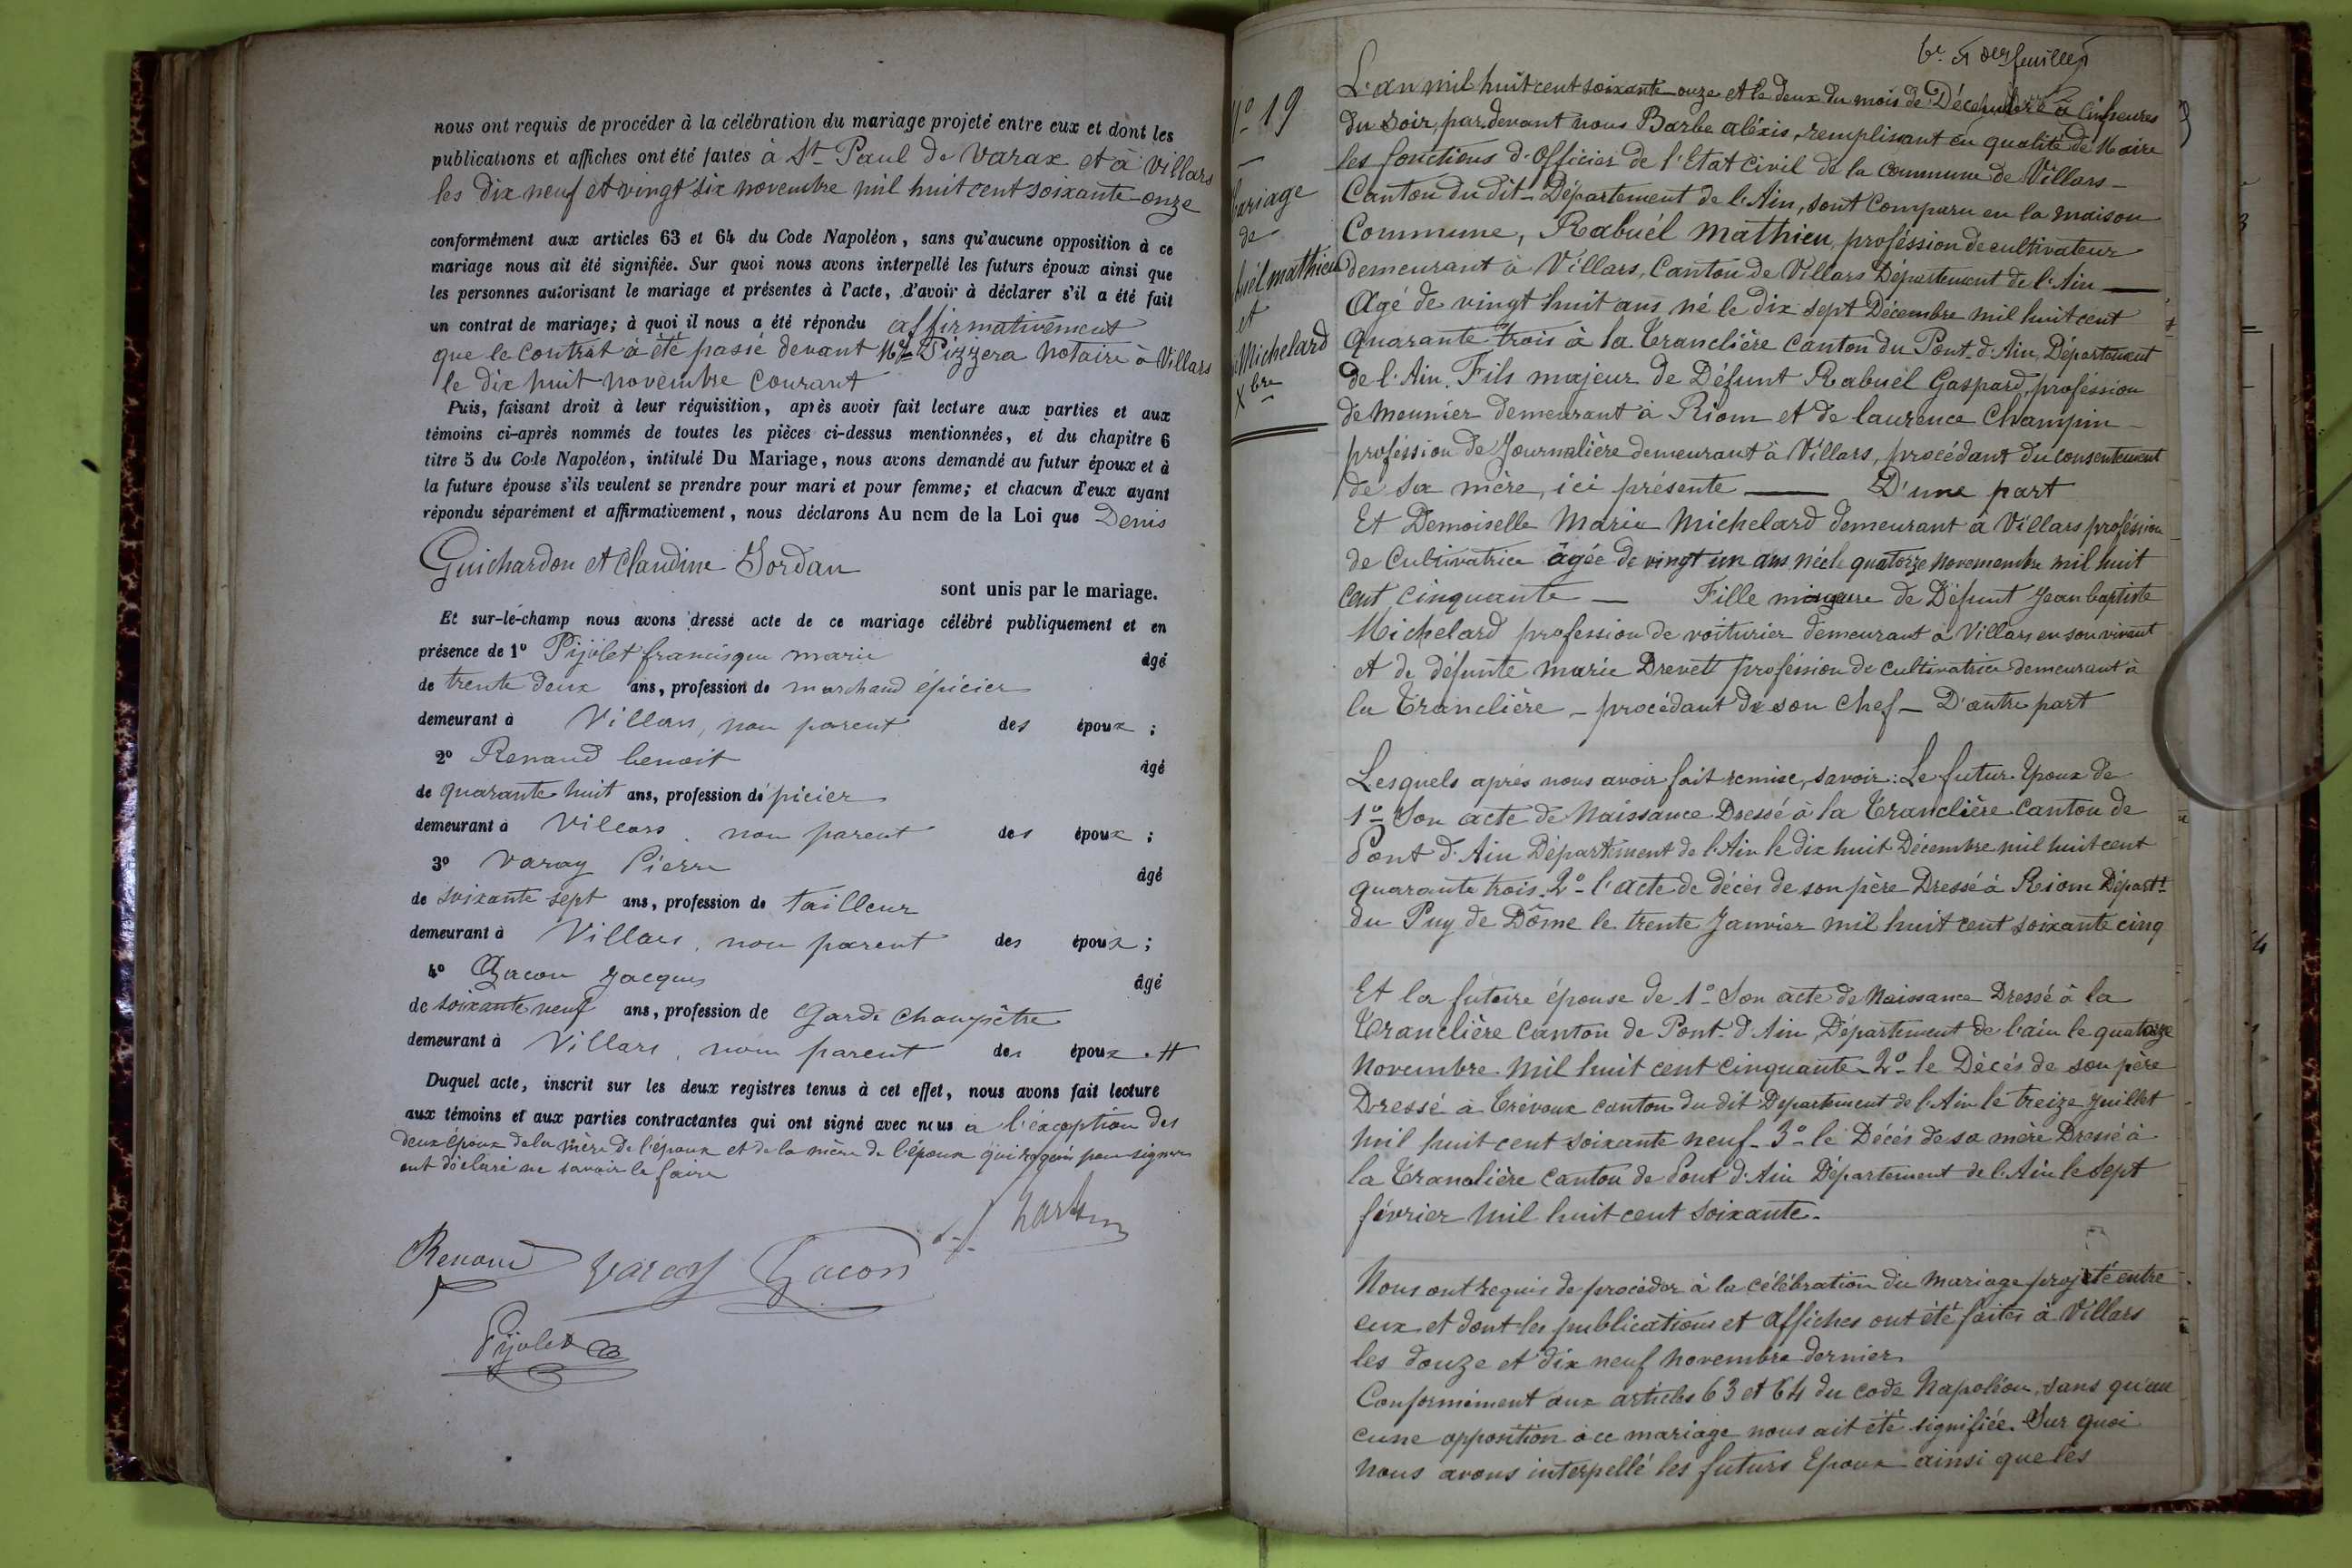 nous ont requis de procéder à la célébration du mariage projeté entre eux et dont les
publications et affiches ont été faites à St Paul de Varax et à Villars
les dix neuf et vingt six novembre mil huit cent soixante-onze
conformément aux articles 63 et 64 du Code Napoléon, sans qu'aucune opposition à ce
mariage nous ait été signifiée. Sur quoi nous avons interpellé les futurs époux ainsi que
les personnes autorisant le mariage et présentes à l'acte, d'avoir à déclarer s'il a été fait
un contrat de mariage; à quoi il nous a été répondu affirmativement
que le contrat à été passé devant Me Pizzera Notaire à Villars
le dix huit novembre courant
Puis, faisant droit à leur réquisition, après avoir fait lecture aux parties et aux
témoins ci-après nommés de toutes les pièces ci-dessus mentionnées, et du chapitre 6
titre 5 du Code Napoléon, intitulé Du Mariage, nous avons demandé au futur époux et à
la future épouse s'ils veulent se prendre pour mari et pour femme; et chacun d'eux ayant
répondu séparément et affirmativement, nous déclarons Au nom de la Loi que Denis
Guichardon et Claudine Jordan
sont unis par le mariage.
Et sur-le-champ nous avons dressé acte de ce mariage célébré publiquement et en
présence de 1º Pijolet francisque marie âgé
de trente deux ans, profession de marchand épicier
demeurant à Villars, non parent des époux ;
2º Renaud benoit âgé
de quarante huit ans, profession dé picier
demeurant à Villars, non parent des époux ;
3º Varay Pierre âgé
de soixante sept ans, profession de tailleur
demeurant à Villars, non parent des époux ;
4º Gacon Jacques âgé
de soixante neuf ans, profession de Garde Champêtre
demeurant à Villars, non parent des époux .#
Duquel acte, inscrit sur les deux registres tenus à cet effet, nous avons fait lecture
aux témoins et aux parties contractantes qui ont signé avec nous à l'exception des
deux époux de la mère de l'époux et de la mère de l'épouse qui requis pour signer
ont déclaré ne savoir le faire
Renaud Varay Gacon
Pijolet
feuillet
Nº 19
ariage
de
buél mathieu
et
Michelard
Xbre
L'an mil huit cent soixante onze et le deux du mois de Décembre à cinq heures
du soir, par devant nous Barbe aléxis, remplisant en qualité de Maire
les fonctions d'officier de l'Etat civil de la commune de Villars -
Canton du dit - Département de l'Ain, sont Comparu en la maison
Commune, Rabuél Mathieu, proféssion de cultivateur
demeurant à Villars, Canton de Villars Département de l'Ain —
Agé de vingt huit ans né le dix sept Décembre mil huit cent
quarante trois à la Tranclière Canton du Pont-d'Ain, Département
de l'Ain. Fils majeur de Défunt Rabuél Gaspard, proféssion
de meunier demeurant à Riom et de laurence Champin -
proféssion de Journalière demeurant à Villars, procédant du consentement
de sa mère, ici présente — D'une part
Et Demoiselle Marie Michelard demeurant à Villars proféssion
de cultivatrice âgée de vingt un ans née le quatorze novemembre mil huit
cent cinquante — Fille majeure de Défunt Jean baptiste
Michelard profession de voiturier demeurant à Villars en son vivant
et de défunte marie Drevet proféssion de cultivatrice demeurant à
la Tranclière - procédant de son chef - D'autre part
Lesquels aprés nous avoir fait remise, savoir: Le futur Epoux de
1º Son acte de Naissance Dressé à la Tranclière Canton de
Pont d'Ain Département de l'Ain le dix huit Décembre mil huit cent
quarante trois. 2º- l'acte de décés de son père Dressé à Reiom Départt
du Puy de Dôme le trente Janvier mil huit cent soixante cinq
Et la future épouse de 1º Son acte de Naissance Dressé à la
Tranclière Canton de Pont-d'Ain, Département de l'ain le quatorze
Novembre mil huit cent cinquante - 2º- le Décés de son père
Dressé à Trévoux canton du dit Département de l'Ain le treize Juillet
mil huit cent soixante neuf - 3º- le Décés de sa mère Dressé à
la Tranclière canton de Pont d'Ain Département de l'Ain le sept
février mil huit cent soixante.
Nous ont requis de procéder à la célébration du mariage projeté entre
eux et dont les publications et affiches ont été faites à Villars
les douze et dix neuf novembre dernier
Conformément aux articles 63 et 64 du code Napoléon, sans qu'au
cune opposition à ce mariage nous ait été signifiée. Sur quoi
nous avons interpellé les futurs Epoux ainsi que les